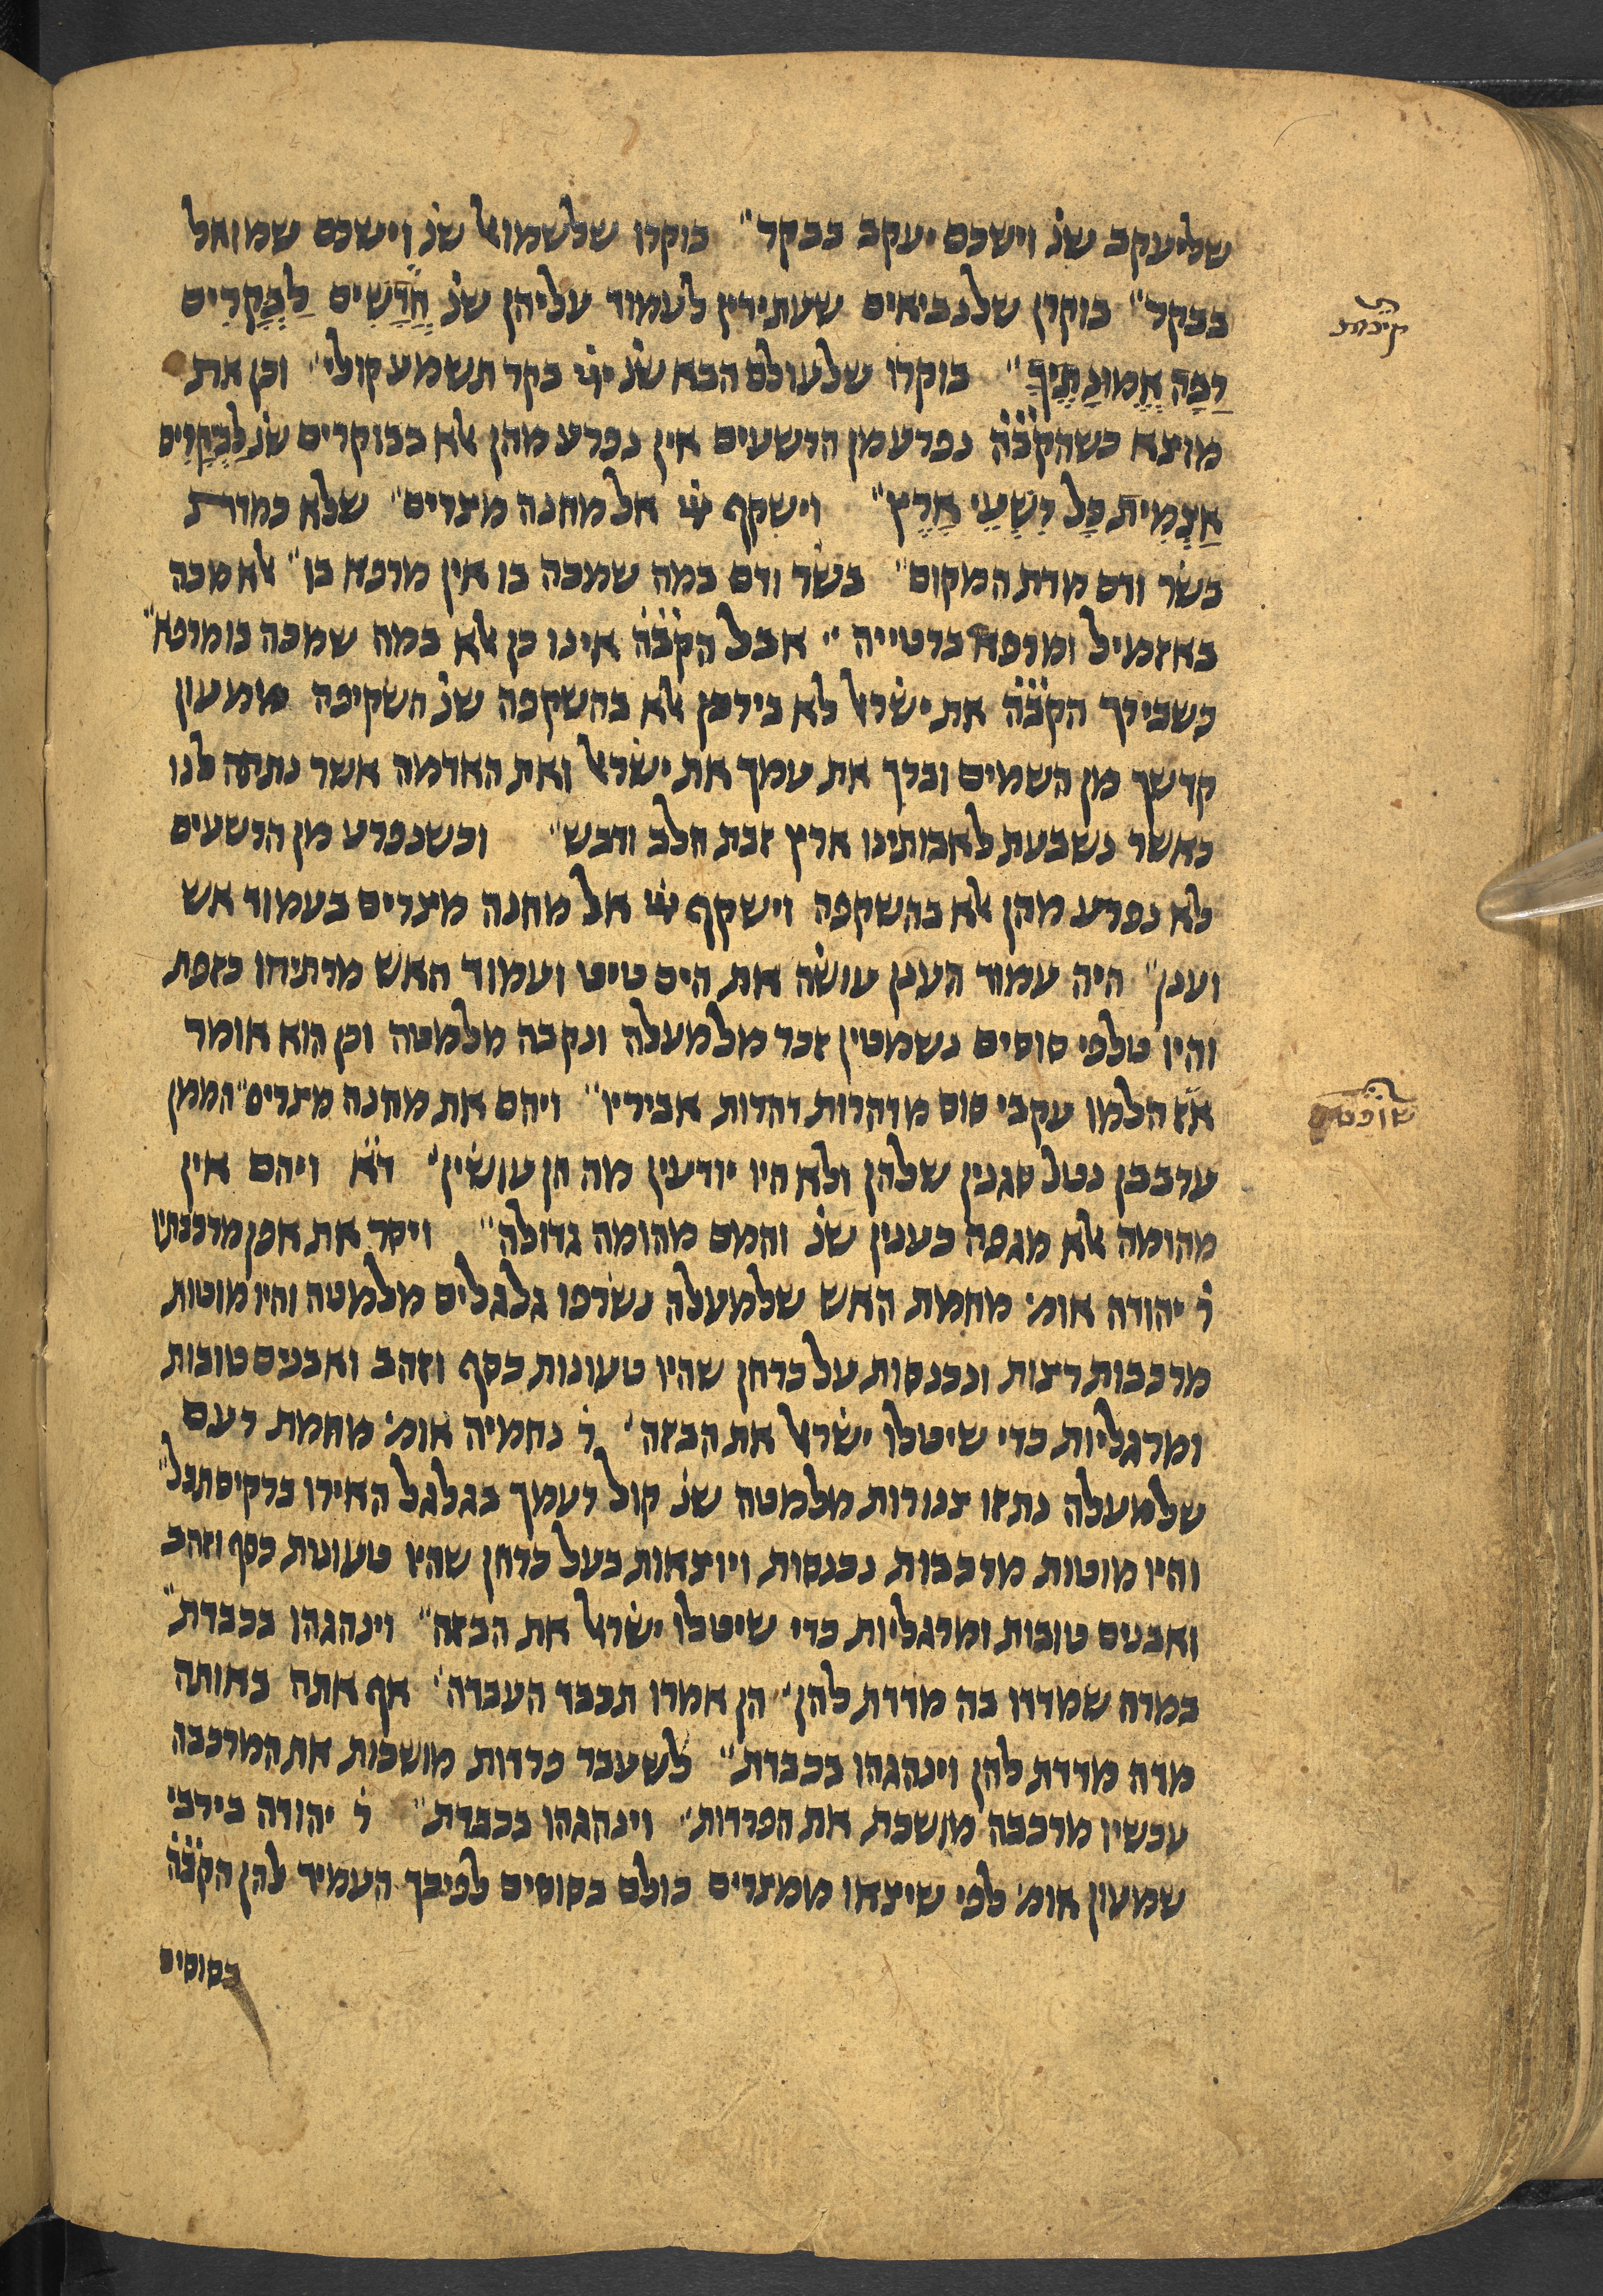 שליעקב שנ׳ וישכם יעקב בבקר״ בוקרו שלשמואל שנ׳ וישכם שמואל
בבקר״ בוקרן שלנביאים שעתידין לעמוד עליהן שנ׳ חֲדָשִׁים לַבְּקָרִים
רַבָּה אֱמוּנָתֶיךָ״ בוקרו שלעולם הבא שנ׳ ייי בקר תשמע קולי׳ וכן את
מוצא כשהקב̇ה̇ נפרע מן הרשעים אין נפרע מהן אלא בבוקרים שנ׳ לַבְּקָרִים
אַצְמִית כָּל רִשְׁעֵי אָרֶץ״ וישקף ייי אל מחנה מצרים״ שלא כמדת
בשר ודם מדת המקום״ בשר ודם במה שמכה בו אין מרפא בו״ אלא מכה
באזמיל ומרפא ברטייה״ אבל הקב̇ה̇ אינו כן אלא במה שמכה בו מרפא״
כשבירך הקב̇ה̇ את ישראל לא בירכן אלא בהשקפה שנ׳ השקיפה ממעון
קדשך מן השמים וברך את עמך את ישראל ואת האדמה אשר נתתה לנו
כאשר נשבעת לאבותינו ארץ זבת חלב ודבש״ וכשנפרע מן הרשעים
לא נפרע מהן אלא בהשקפה וישקף ייי אל מחנה מצרים בעמוד אש
וענן״ היה עמוד הענן עושה את הים טיט ועמוד האש מרתיחו כזפת
והיו טלפי סוסים נשמטין זכר מלמעלה ונקבה מלמטה וכן הוא אומר
אז הלמו עקבי סוס מדהרות דהרות אביריו״ ויהם את מחנה מצרים״ הממן
ערבבן נטל סגנין שלהן ולא היו יודעין מה הן עושין׳ ד̇א̇ ויהם אין
מהומה אלא מגפה כענין שנ׳ והמם מהומה גדולה״ ויסר את אפן מרכבתיו
ר׳ יהודה אומ׳ מחמת האש שלמעלה נשרפו גלגלים מלמטה והיו מוטות
מרכבות רצות ונכנסות על כרחן שהיו טעונות כסף וזהב ואבנים טובות
ומרגליות כדי שיטלו ישראל את הבזה׳ ר׳ נחמיה אומ׳ מחמת רעם
שלמעלה נתזו צנורות מלמטה שנ׳ קול רעמך בגלגל האירו ברקים תבל״
והיו מוטות מרכבות נכנסות ויוצאות בעל כרחן שהיו טעונות כסף וזהב
ואבנים טובות ומרגליות כדי שיטלו ישראל את הבזה״ וינהגהו בכבדת״
במדה שמדדו בה מדדת להן׳ הן אמרו תכבד העבדה׳ אף אתה באותה
מדה מדדת להן וינהגהו בכבדת״ לשעבר פרדות מושכות את המרכבה
עכשיו מרכבה מושכת את הפרדות׳ וינהגהו בכבדת״ ר׳ יהודה בירבי
שמעון אומ׳ לפי שיצאו ממצרים כולם בסוסים לפיכך העמיד להן הקב̇ה̇
בסוסים
שופטים